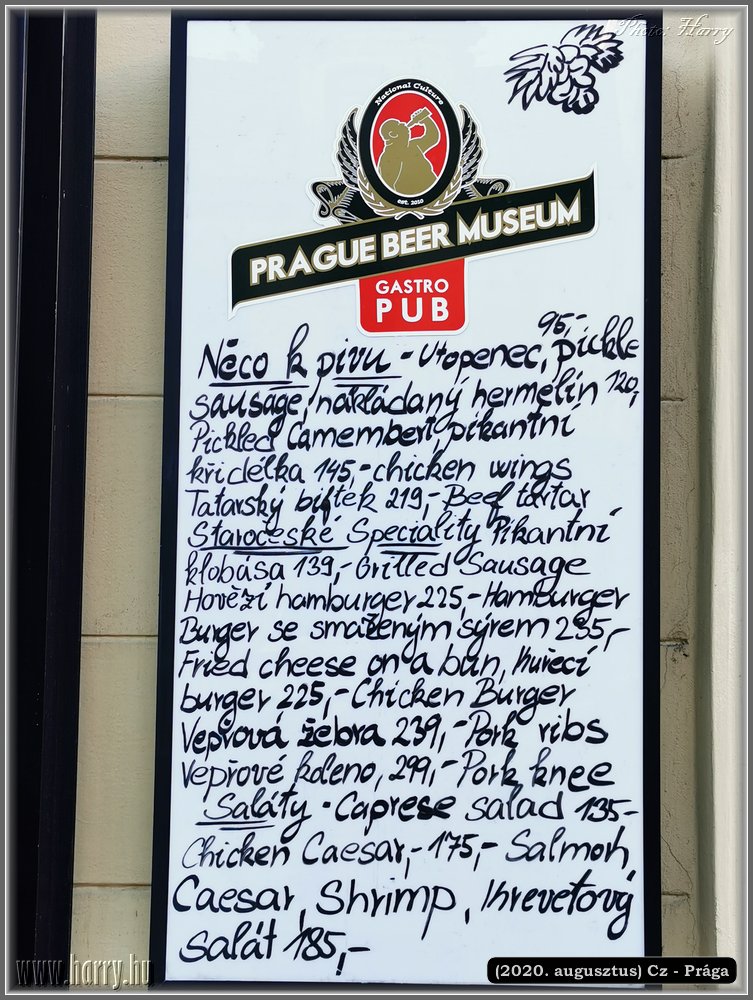 Photo: Harry
National Culture
est. 2010
PRAGUE BEER MUSEUM
GASTRO
PUB
95,-
Něco k pivu - Utopenec, pickle
sausage, nakládaný hermelín 120,
Pickled Camembert, pikantní
křidélka 145,- chicken wings
Tatarský biftek 219,- Beef tartar
Staročeské Speciality Pikantní
klobása 139,- Grilled Sausage
Hovězí hamburger 225,- Hamburger
Burger se smaženým sýrem 235,-
Fried cheese on a bun, Kuřecí
burger 225,- Chicken Burger
Vepřová žebra 239,- Pork ribs
Vepřové koleno, 299,- Pork knee
Saláty - Caprese salad 135-
Chicken Caesar,- 175,- Salmon
Caesar, Shrimp, Krevetový
salát 185,-
www.harry.hu
(2020. augusztus) Cz - Prága